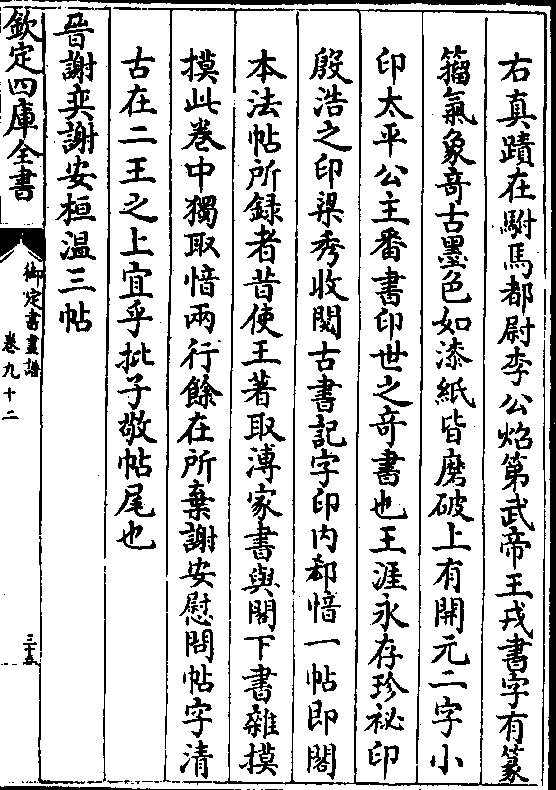 右真蹟在駙馬都尉李公炤第武帝王戎書字有篆
籀氣象奇古墨色如漆紙皆磨破上有開元二字小
印太平公主番書印世之奇書也王涯永存珍祕印
殷浩之印梁秀收閱古書記字印内郗愔一帖即閣
本法帖所録者昔使王著取溥家書與閣下書雜摸
摸此卷中獨取愔兩行餘在所棄謝安慰問帖字清
古在二王之上宜乎批子敬帖尾也
晉謝奕謝安桓温三帖
欽定四庫全書
御定書畫譜
卷九十二
三十五